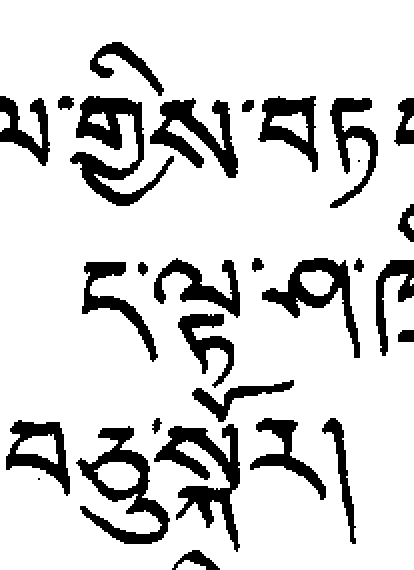 གྱིས་བཏ
ད་ལྟ་ཤ་
བཅུ་སྐོར།